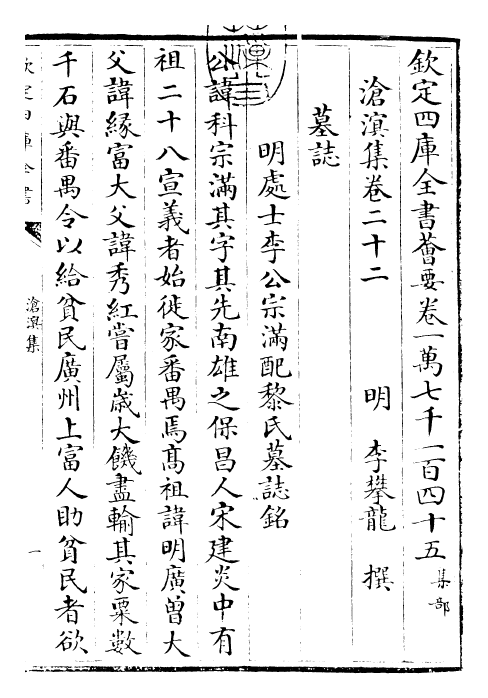 欽定四庫全書薈要卷一萬七千一百四十五 集部
滄溟集卷二十二 明 李攀龍 撰
墓誌
明處士李公宗滿配黎氏墓誌銘
公諱科宗滿其字其先南雄之保昌人宋建炎中有
祖二十八宣義者始徙家番禺焉髙祖諱明廣曽大
父諱緣富大父諱秀紅嘗屬歳大饑盡輸其家粟數
千石與番禺令以給貧民廣州上富人助貧民者欲
欽定四庫全書
滄溟集
一